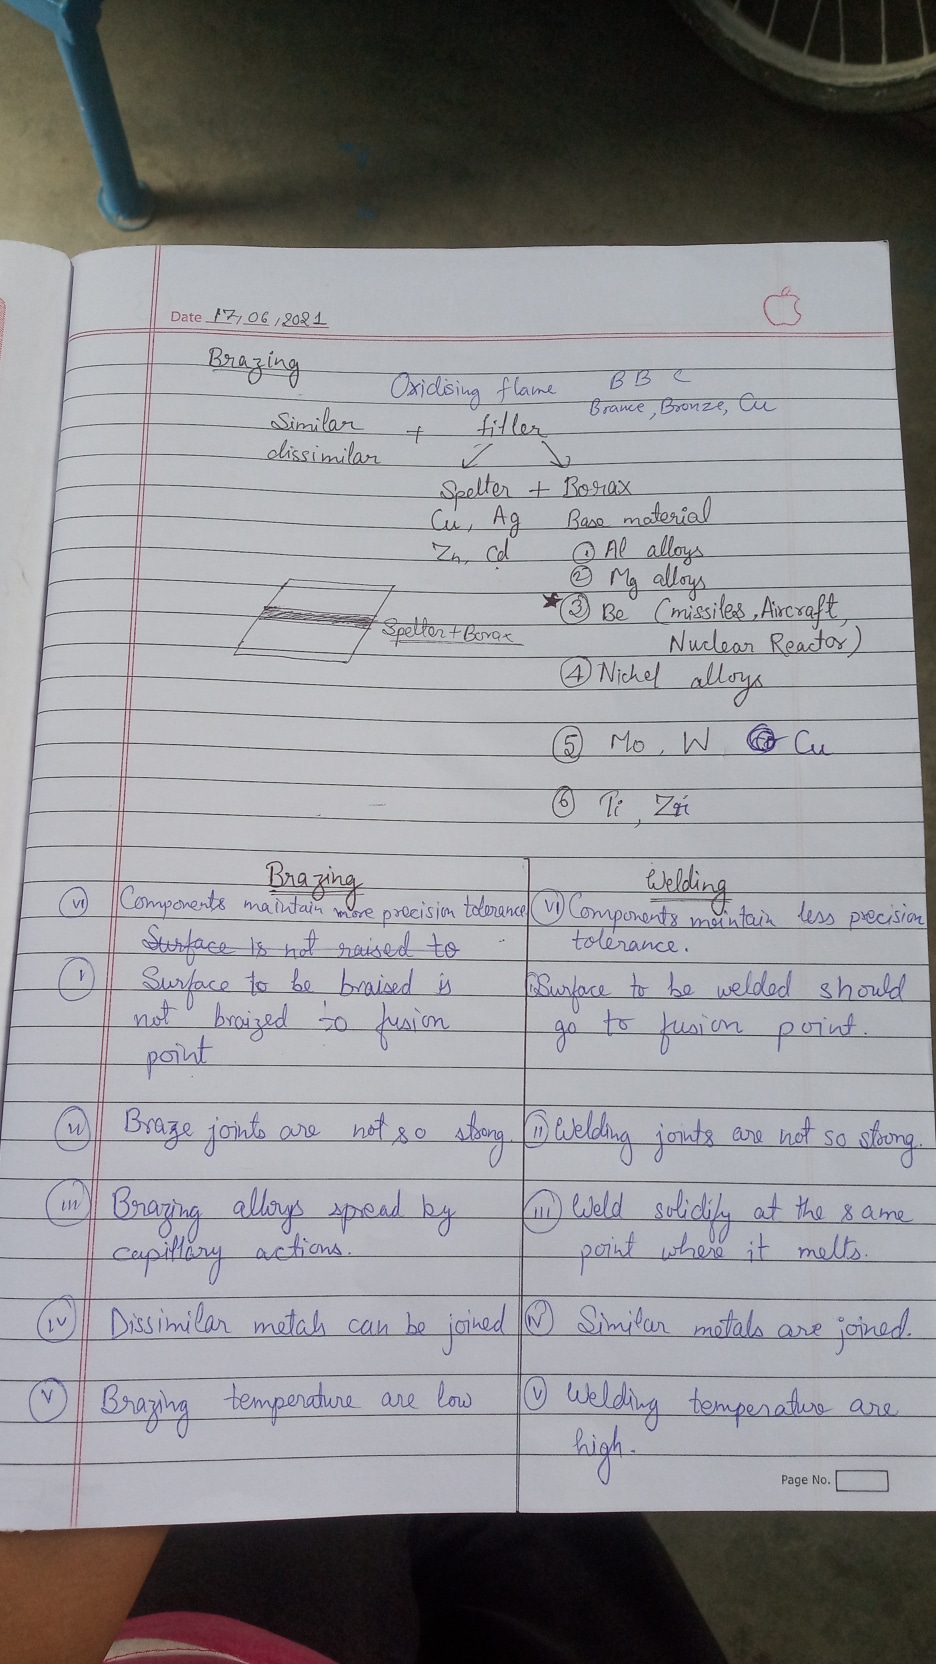 Date 17,06,2021
Brazing
Oxidising flame B B C
Brance, Bronze, Cu
Similar + filler
dissimilar
Spelter + Borax
Cu, Ag Base material
Zn, Cd ① Al alloys
② Mg alloys
★③ Be (missiles, Aircraft,
Spelter+Borax Nuclear Reactor)
④ Nichel alloys
⑤ Mo, W Cu
⑥ Ti, Zr
Brazing Welding
vi Components maintain more precision tolerance vi Components maintain less precision
Surface is not raised to tolerance.
i Surface to be braised is i Surface to be welded should
not braized to fusion go to fusion point.
point
ii Braze joints are not so strong. ii Welding joints are not so strong.
iii Brazing alloys spread by iii Weld solidify at the same
capillary actions. point where it melts.
iv Dissimilar metals can be joined iv Similar metals are joined.
v Brazing temperature are low v Welding temperature are
high.
Page No.